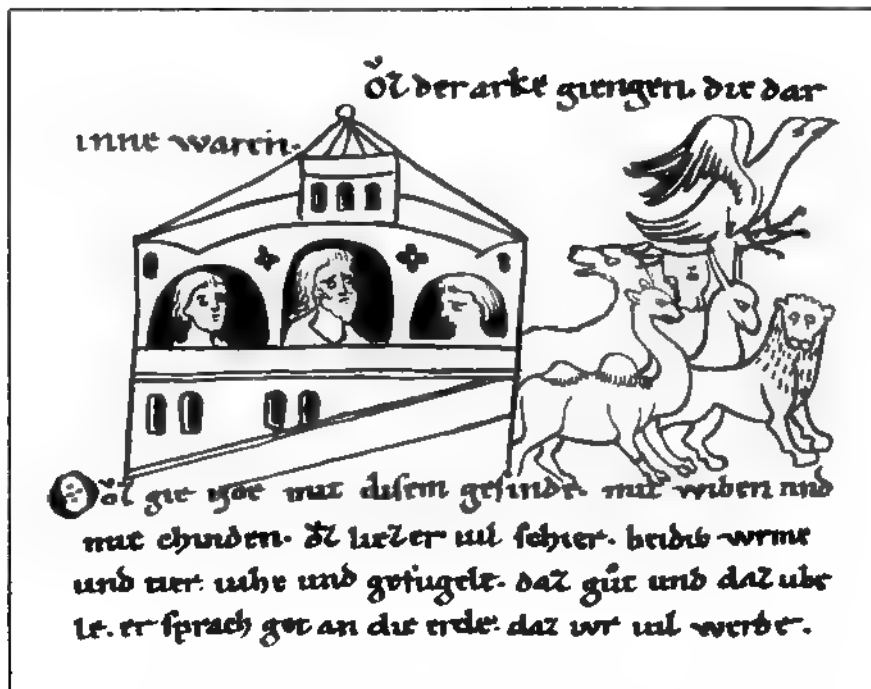 Oͮz der arke giengen. die dar
inne waren.
Oͮz gie noe mit disem gesinde. mit wiben und
mit chinden. oͮz liez er uil schier. beidiv wrme
und tier. uihe und gefugele. daz guͦt und daz ube
le. er sprach get an die erde. daz iwr uil werde.